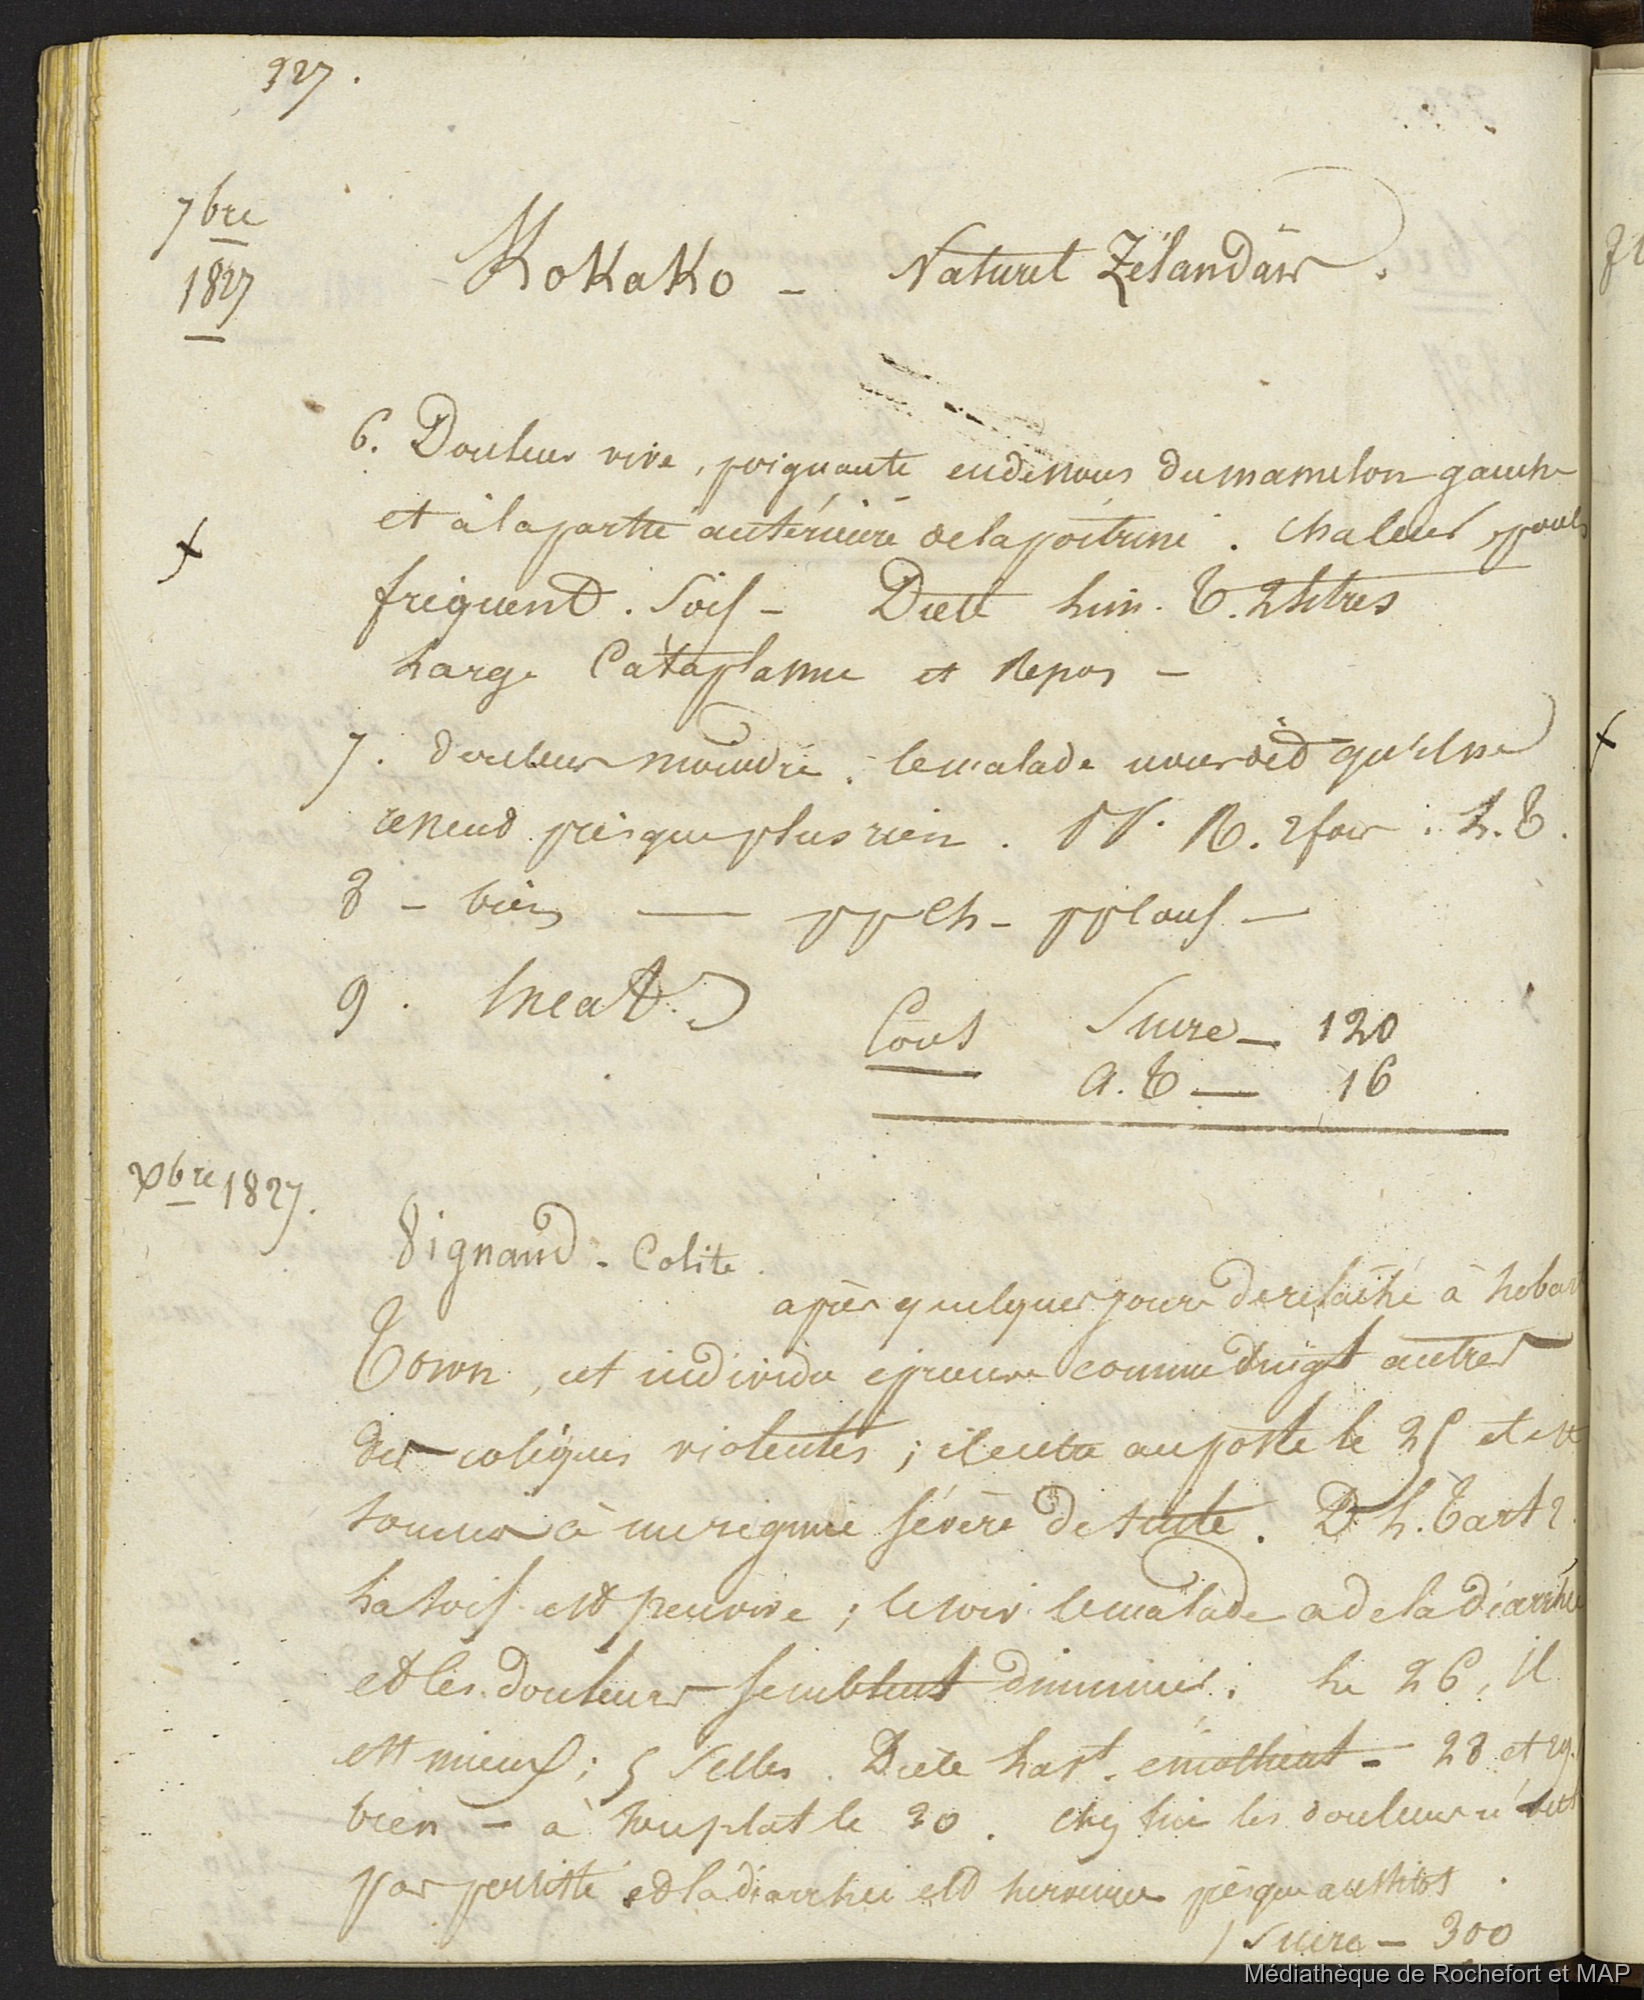 327.
7bre
1827
Kokako - Naturel Zélandais.
6. Douleur vive, poignante en dessous du mamelon gauche
et à la partie antérieure de la poitrine. Chaleur, pouls
fréquent. Soif - Diète Lim. T. 2 litres
Large Cataplasme et Repos -
7. douleur moindre. le malade nous dit qu'il ne
ressent presque plus rien. R. 2 fois. L. T.
8 - bien
9. Exeat.
Cons Sucre - 120
A. T - 16
Xbre 1827.
Vignaud - Colite.
après quelques jours de relâche à hobart
Town, cet individu éprouve comme vingt autres
des coliques violentes; il entra au poste le 25 et est
soumis à un régime sévère de suite. D. L. Tart 2.
La soif est peu vive; le soir le malade a de la diarrhée
et les douleurs semblent diminuer. Le 26, il
est mieux; 5 Selles. Diète Lavt. émollient - 28 et 29.
bien - à son plat le 30. Chez lui les douleurs n'ont
pas persisté et la diarrhée est survenue presque aussitôt.
Sucre - 300
Médiathèque de Rochefort et MAP